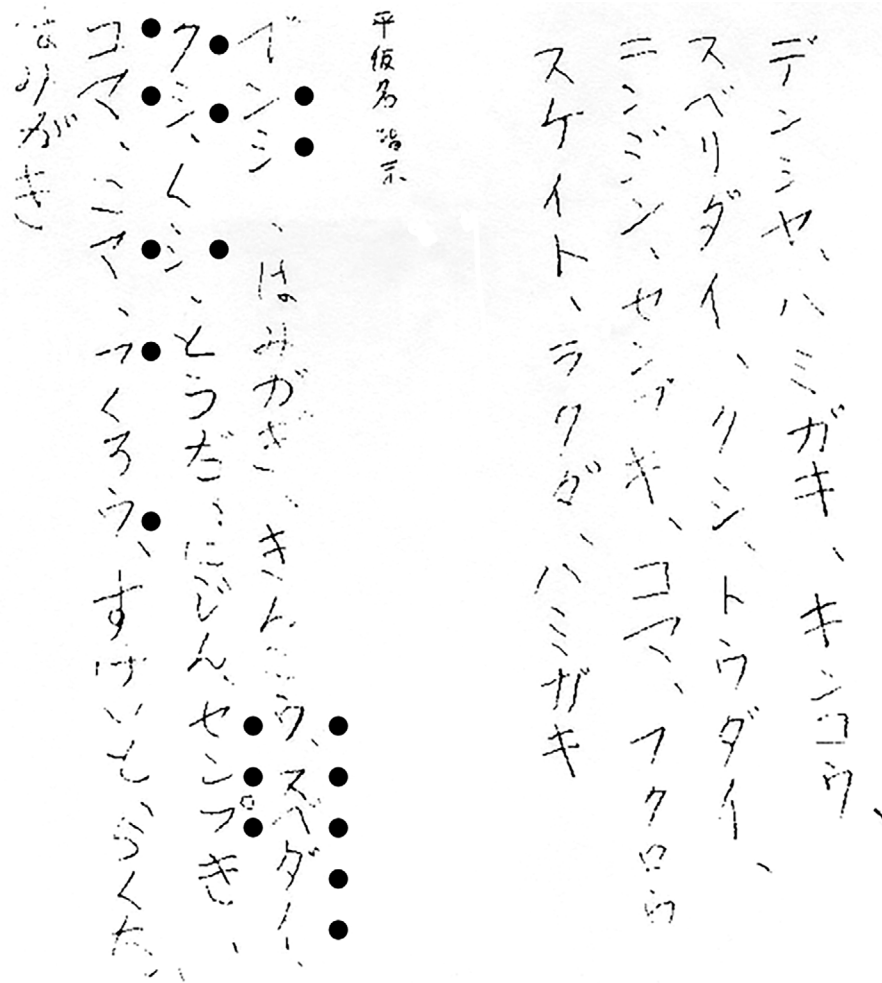 デンシヤ、ハミガキ、キンコウ、
スベリダイ、クシ、トウダイ、
ニンジン、センプキ、コマ、フクロウ
スケイト、ラクダ、ハミガキ
平仮名 指示
デンシ、はみがき、きんこウ、スベダイ、
クシ、くシ、とうだい、にじん、センプき、
コマ、こマ、フくろウ、すけいと、らくだ、
はみがき